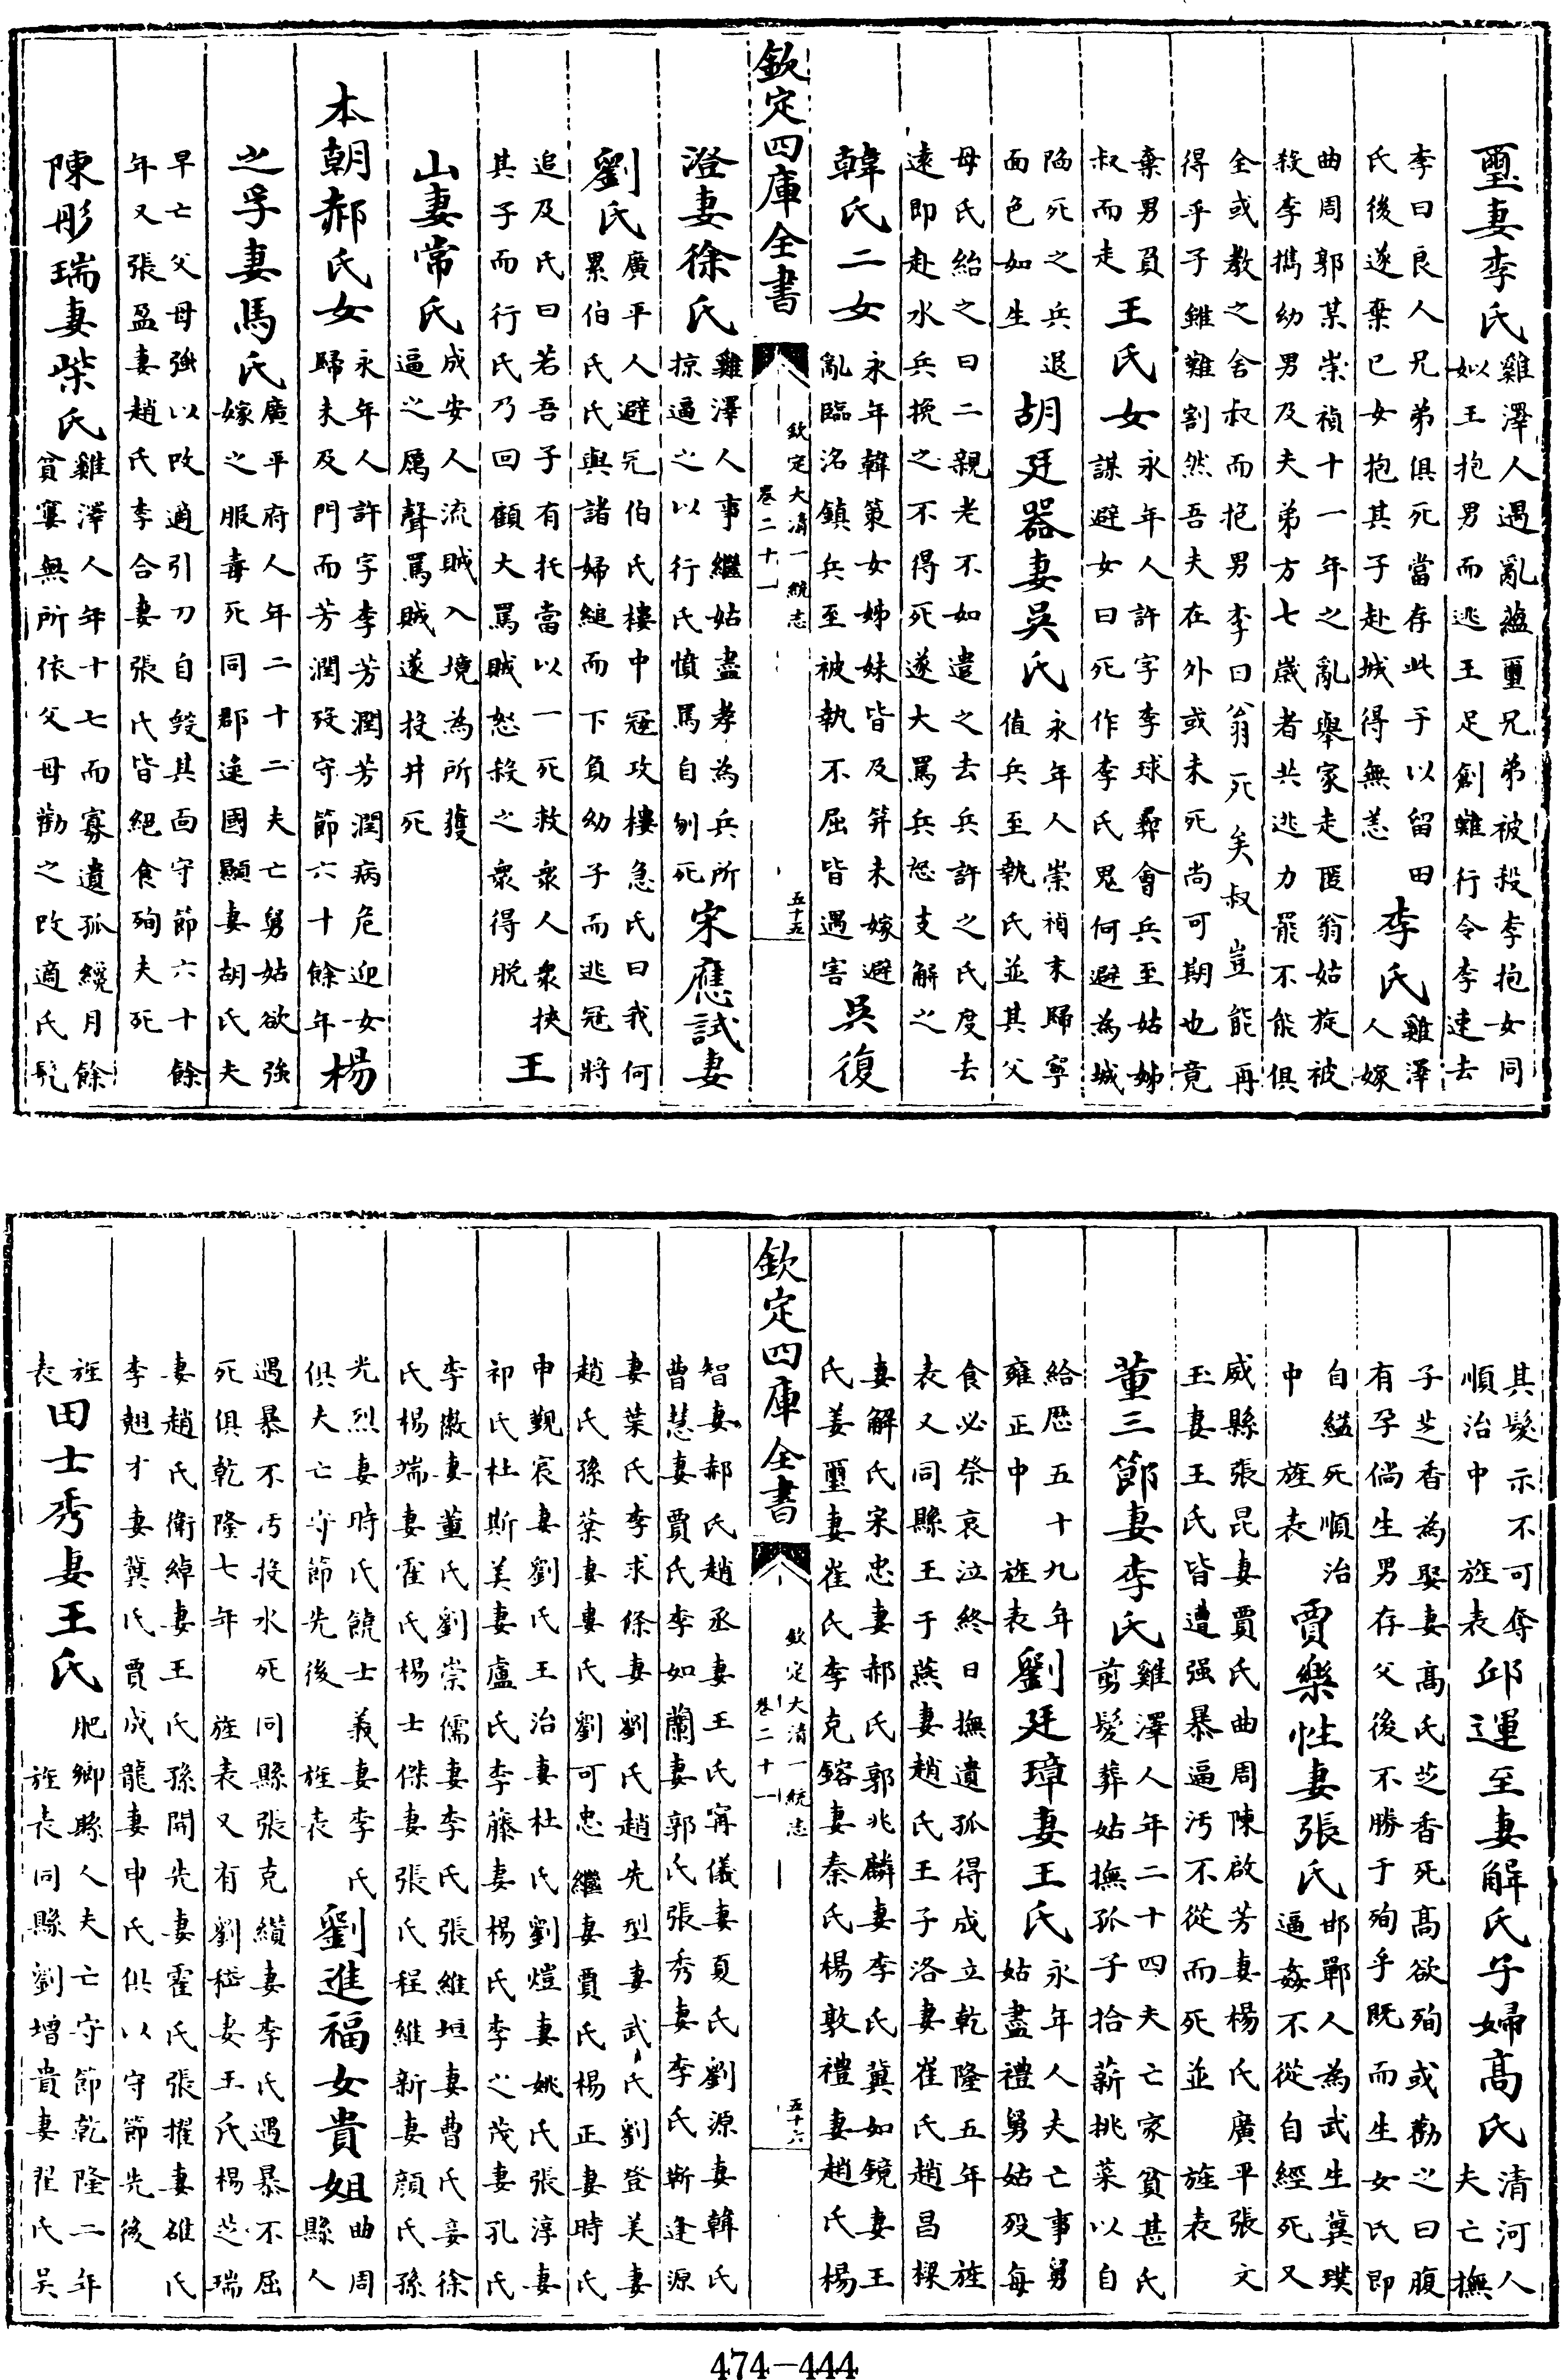 璽妻李氏雞澤人遇亂蘊璽兄弟被殺李抱女同
姒王抱男而逃王足創難行令李速去
李曰良人兄弟俱死當存此子以留田
氏後遂棄已女抱其子赴城得無恙李氏雞澤
人嫁
曲周郭某崇禎十一年之亂舉家走匿翁姑旋被
殺李攜幼男及夫弟方七歲者共逃力罷不能俱
全或教之舍叔而抱男李曰翁死矣叔豈能再
得乎子雖難割然吾夫在外或未死尚可期也竟
棄男負
叔而走王氏女永年人許字李球彞會兵至姑姊
謀避女曰死作李氏鬼何避為城
陷死之兵退
面色如生胡廷器妻吳氏永年人崇禎末歸寧
值兵至執氏並其父
母氏紿之曰二親老不如遣之去兵許之氏度去
遠即赴水兵挽之不得死遂大罵兵怒支解之
韓氏二女永年韓策女姊妹皆及笄未嫁避
亂臨洺鎮兵至被執不屈皆遇害吳復
欽定四庫全書
欽定大清一統志
卷二十一
五十五
澄妻徐氏雞澤人事繼姑盡孝為兵所
掠逼之以行氏憤罵自刎死宋應試妻
劉氏廣平人避冦伯氏樓中冦攻樓急氏曰我何
累伯氏氏與諸婦縋而下負幼子而逃冦將
追及氏曰若吾子有托當以一死救衆人衆挾
其子而行氏乃回顧大罵賊怒殺之衆得脫王
山妻常氏成安人流賊入境為所獲
逼之厲聲罵賊遂投井死
本朝郝氏女永年人許字李芳潤芳潤病危迎女
歸未及門而芳潤歿守節六十餘年楊
之孚妻馬氏廣平府人年二十二夫亡舅姑欲強
嫁之服毒死同郡逯國顯妻胡氏夫
早亡父母強以改適引刀自毀其面守節六十餘
年又張盈妻趙氏李合妻張氏皆絕食殉夫死
陳彤瑞妻柴氏雞澤人年十七而寡遺孤繞月餘
貧窶無所依父母勸之改適氏髠
其髮示不可奪
順治中旌表邱運至妻解氏子婦高氏清河人
夫亡撫
子芝香為娶妻高氏芝香死高欲殉或勸之曰腹
有孕倘生男存父後不勝于殉乎既而生女氏即
自縊死順治
中旌表賈樂性妻張氏邯鄲人為武生冀璞
逼姦不從自經死又
威縣張昆妻賈氏曲周陳啟芳妻楊氏廣平張文
玉妻王氏皆遭强暴逼汚不從而死並旌表
董三節妻李氏雞澤人年二十四夫亡家貧甚氏
剪髮葬姑撫孤子拾薪挑菜以自
給歷五十九年
雍正中旌表劉廷璋妻王氏永年人夫亡事舅
姑盡禮舅姑歿每
食必祭哀泣終日撫遺孤得成立乾隆五年旌
表又同縣王于燕妻趙氏王子洛妻崔氏趙昌櫟
妻解氏宋忠妻郝氏郭兆麟妻李氏冀如鏡妻王
氏姜璽妻崔氏李克鎔妻秦氏楊敦禮妻趙氏楊
欽定四庫全書
欽定大清一統志
卷二十一
五十六
智妻郝氏趙丞妻王氏甯儀妻夏氏劉源妻韓氏
曹慧妻賈氏李如蘭妻郭氏張秀妻李氏靳逢源
妻葉氏李求條妻劉氏趙先型妻武氏劉登美妻
趙氏孫葉妻婁氏劉可忠繼妻賈氏楊正妻時氏
申覲宸妻劉氏王治妻杜氏劉愷妻姚氏張淳妻
祁氏杜斯美妻盧氏李藤妻楊氏李之茂妻孔氏
李徽妻董氏劉崇儒妻李氏張維垣妻曹氏妾徐
氏楊端妻霍氏楊士傑妻張氏程維新妻顏氏孫
光烈妻時氏饒士義妻李氏
俱夫亡守節先後旌表劉進福女貴姐曲周
縣人
遇暴不汚投水死同縣張克纘妻李氏遇暴不屈
死俱乾隆七年旌表又有劉嵇妻王氏楊芝瑞
妻趙氏衛綽妻王氏孫開先妻霍氏張擢妻雒氏
李翹才妻冀氏賈成龍妻申氏俱以守節先後
旌
表田士秀妻王氏肥鄉縣人夫亡守節乾隆二年
旌表同縣劉增貴妻翟氏吳
474-444